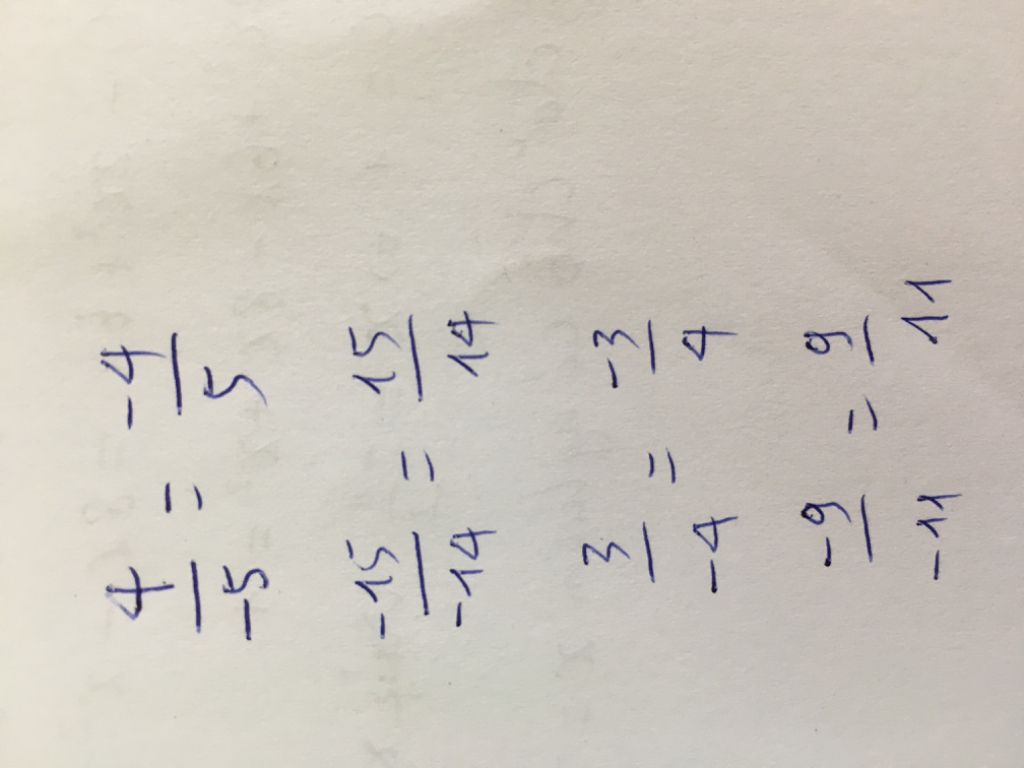 4/-5 = -4/5
-15/-14 = 15/14
3/-4 = -3/4
-9/-11 = 9/11